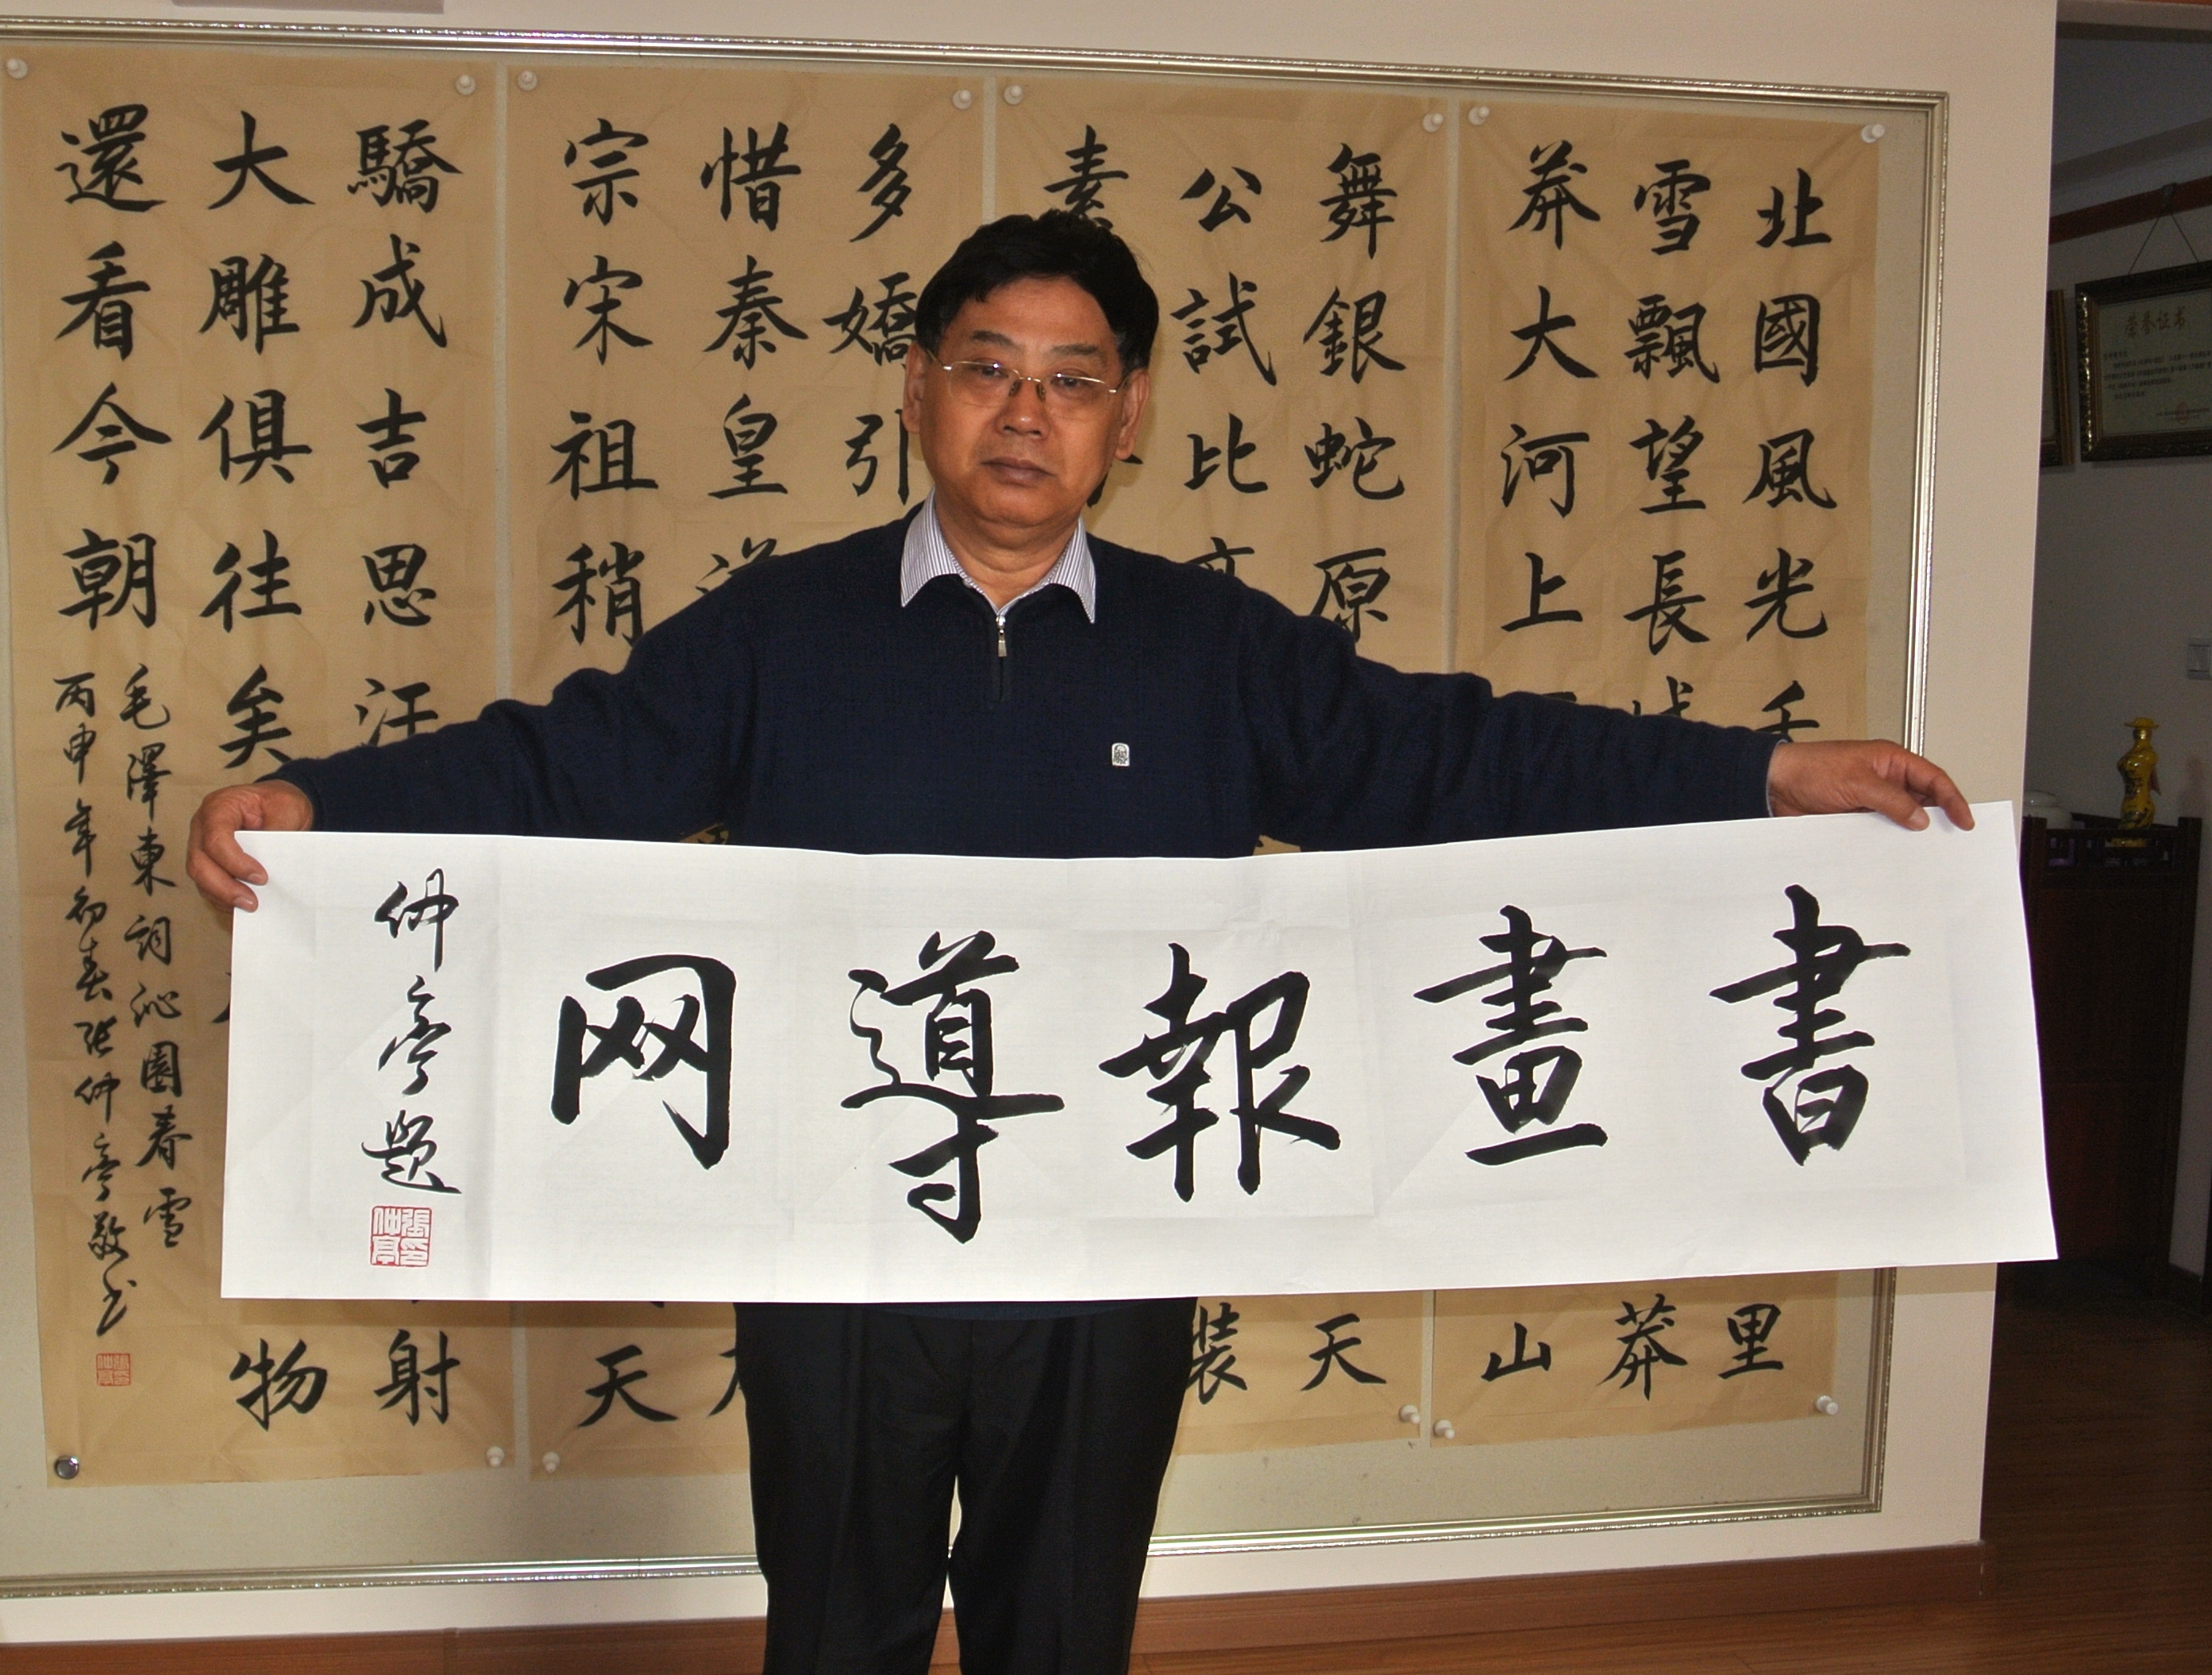 書畫報導网
仲亭题
張仲亭印
北國風光千里
雪飄望長城莽
莽大河上山
舞銀蛇原天
公試比高裝
素
多嬌引
惜秦皇
宗宋祖稍天
驕成吉思汗射
大雕俱往矣物
還看今朝
毛澤東詞沁園春雪
丙申年初春张仲亭敬书
荣誉证书